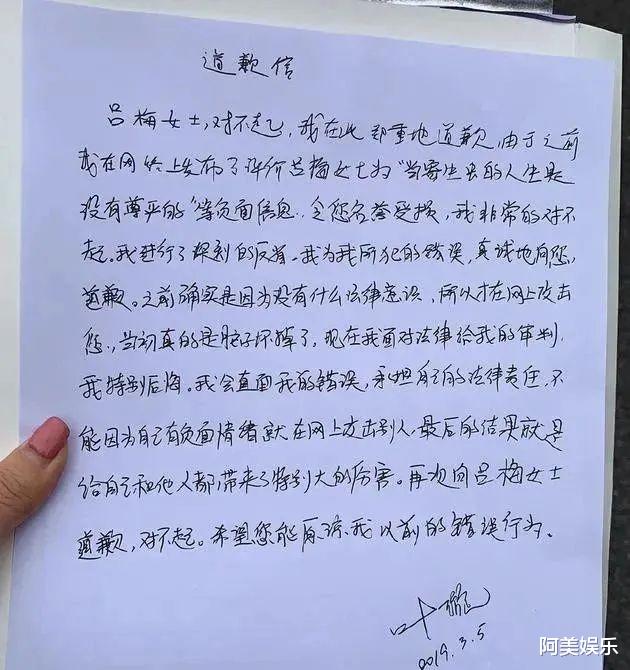 道歉信
吕梅女士,对不起,我在此郑重地道歉,由于之前
我在网络上发布了评价吕梅女士为“当寄生虫的人生是
没有尊严的”等负面信息,令您名誉受损,我非常的对不
起。我进行了深刻的反省。我为我所犯的错误,真诚地向您,
道歉。之前确实是因为没有什么法律意识,所以才在网上攻击
您,当初真的是脑子坏掉了,现在我面对法律给我的审判,
我特别后悔。我会直面我的错误,承担自己的法律责任,不
能因为自己有负面情绪就在网上攻击别人,最后的结果就是
给自己和他人都带来了特别大的伤害。再次向吕梅女士
道歉,对不起。希望您能原谅我以前的错误行为。
叶璇
2019.3.5
阿美娱乐